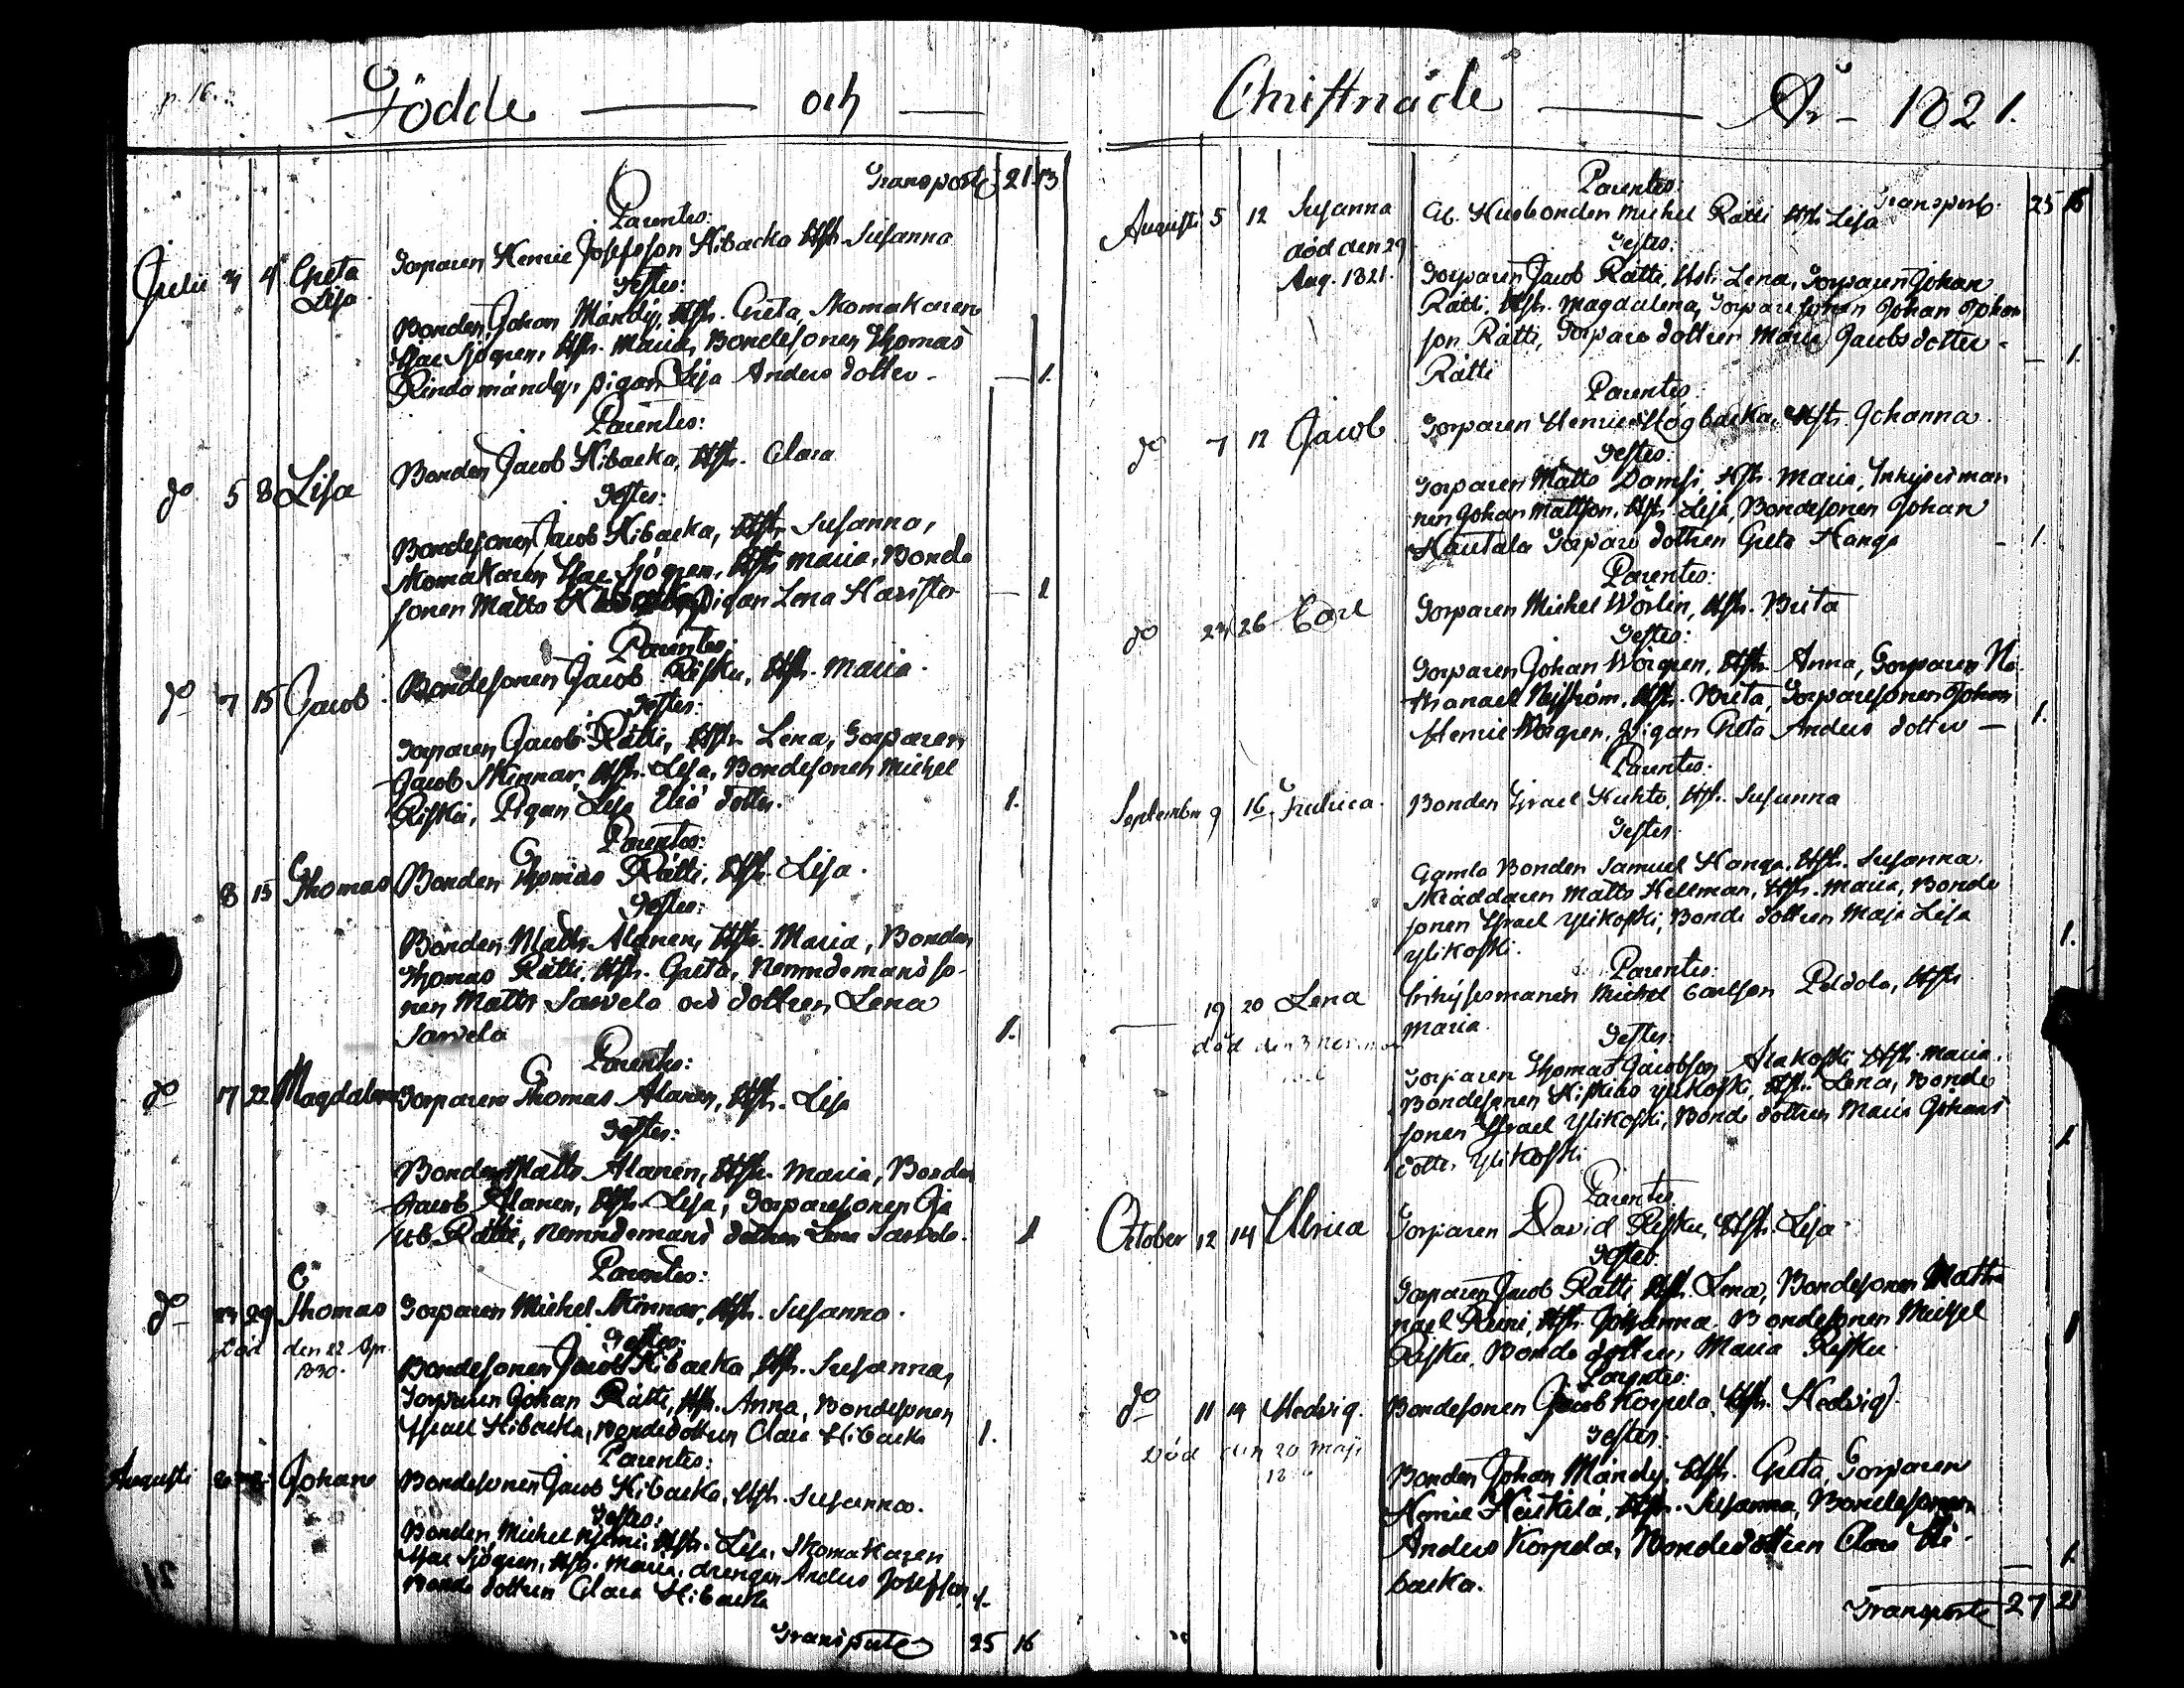 p. 16.
Födde — och —
Transporte 21 13
Parentes:
Julii 3 4 Greta Lisa
Torparen Henric Josepsson Hibacka Hst. Susanna
Testes:
Bonden Johan Mändy, Hst. Greta, Skomakaren
Isac Sjögren, Hst. Maria, Bondesonen Thomas
Rindamändy, pigan Lisa Anders dotter — 1.
Parentes:
do 5 8 Lisa
Bonden Jacob Hibacka, Hst. Clara
Testes:
Bondesonen Jacob Hibacka, Hst. Susanna,
Skomakaren Isac Sjögren, Hst. Maria, Bonde
sonen Matts pigan Lena — 1
Parentes:
do 7 15 Jacob
Bondesonen Jacob Risku, Hst. Maria.
Testes:
Torparen Jacob Rätti, Hst. Lena, Torparen
Jacob Skinnar, Hst. Lisa, Bondesonen Michel
Risku, Pigan Lisa Eliæ dotter. 1.
Parentes:
8 15 Thomas
Bonden Thomas Rätti, Hst. Lisa.
Testes:
Bonden Matts Alanen, Hst. Maria, Bonden
Thomas Rätti, Hst. Greta, Nemndemans so-
nen Matts Sawela och dottren Lena
Sawela 1.
Parentes:
do 17 22 Magdalena
Torparen Thomas Alanen, Hst. Lisa
Testes:
Bonden Matts Alanen, Hst. Maria, Bonden
Jacob Alanen, Hst. Lisa, Torparesonen Ja
cob Rätti, Nemndemans dottren Lena Sawela. 1
Parentes:
do 29 Thomas
Död den 22 Apr. 1830.
Torparen Michel Skinnar, Hst. Susanna.
Testes:
Bondesonen Jacob Hibacka, Hst. Susanna,
Torparen Johan Rätti, Hst. Anna, Bondesonen
Israel Hibacka, Bondedottren Clara Hibacka 1.
Parentes:
Augusti Johan
Bondesonen Jacob Hibacka, Hst. Susanna.
Testes:
Bonden Michel Hst. Lisa, Skomakaren
Isac Sjögren, Hst. Maria, drengen Anders Josefsson,
Bonde dottren Clara Hibacka 1.
Transporte 25 16
Christnade — År — 1821.
Parentes:
Transport. 25 16
Augusti 5 12 Susanna
död den 29 Aug. 1821.
Husbonden Michel Rätti Hst. Lisa
Testes:
Torparen Jacob Rätti, Hst. Lena, Torparen Johan
Rätti, Hst. Magdalena, Torparesonen Johan Johan
son Rätti, Torpare dottren Maria Jacobsdotter
Rätti — 1.
Parentes:
do 7 12 Jacob
Torparen Henric Högbacka, Hst. Johanna
Testes:
Torparen Matts Damsi, Hst. Maria, Inhysesman
nen Johan Mattson, Hst. Lisa, Bondesonen Johan
Hautala Torpare dottren Greta Hanga — 1.
Parentes:
do 24 26 Carl
Torparen Michel Wörlin, Hst. Brita
Testes:
Torparen Johan Wörgren, Hst. Anna, Torparen Na
thanael Nyström, Hst. Brita, Torparesonen Johan
Henric Wörgren, Pigan Greta Anders dotter — 1.
Parentes:
September 9 16 Fredrica.
Bonden Israel Huhta, Hst. Susanna
Testes:
Gamla Bonden Samuel Hanga, Hst. Susanna.
Skräddaren Matts Hellman, Hst. Maria, Bonde
sonen Israel Ylikoski, Bonde dottren Maja Lisa
Ylikoski. 1.
Parentes:
— 19 20 Lena
död den 3
Inhysesmannen Michel Carlsson Peldola, Hst.
Maria.
Testes:
Torparen Thomas Jacobsson Alakoski Hst. Maria.
Bondesonen Hiskias Ylikoski, Hst. Lena, Bonde
sonen Israel Ylikoski, Bonde dottren Maria Johans
dotter Ylikoski 1
Parentes
October 12 14 Ulrica
Torparen David Risku, Hst. Lisa
Testes:
Torparen Jacob Rätti Hst. Lena, Bondesonen Matts
Hst. Johanna. Bondesonen Michel
Risku, Bonde dottren Maria Risku. 1
Parentes:
do 11 14 Hedvig.
Död den 20 Maji
Bondesonen Jacob Korpela, Hst. Hedvig.
Testes:
Bonden Johan Mändy, Hst. Greta, Torparen
Henric Heikkilä, Hst. Susanna, Bondesonen
Anders Korpela, Bondedottren Clara Hi
backa. — 1
Transporte 27 21